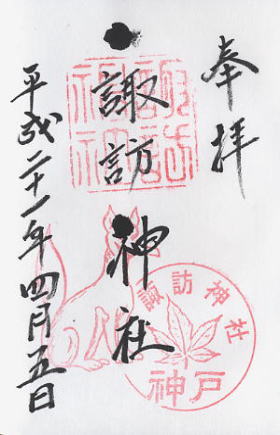 奉拝
諏訪神社
平成二十一年四月五日
諏訪神社
神戸